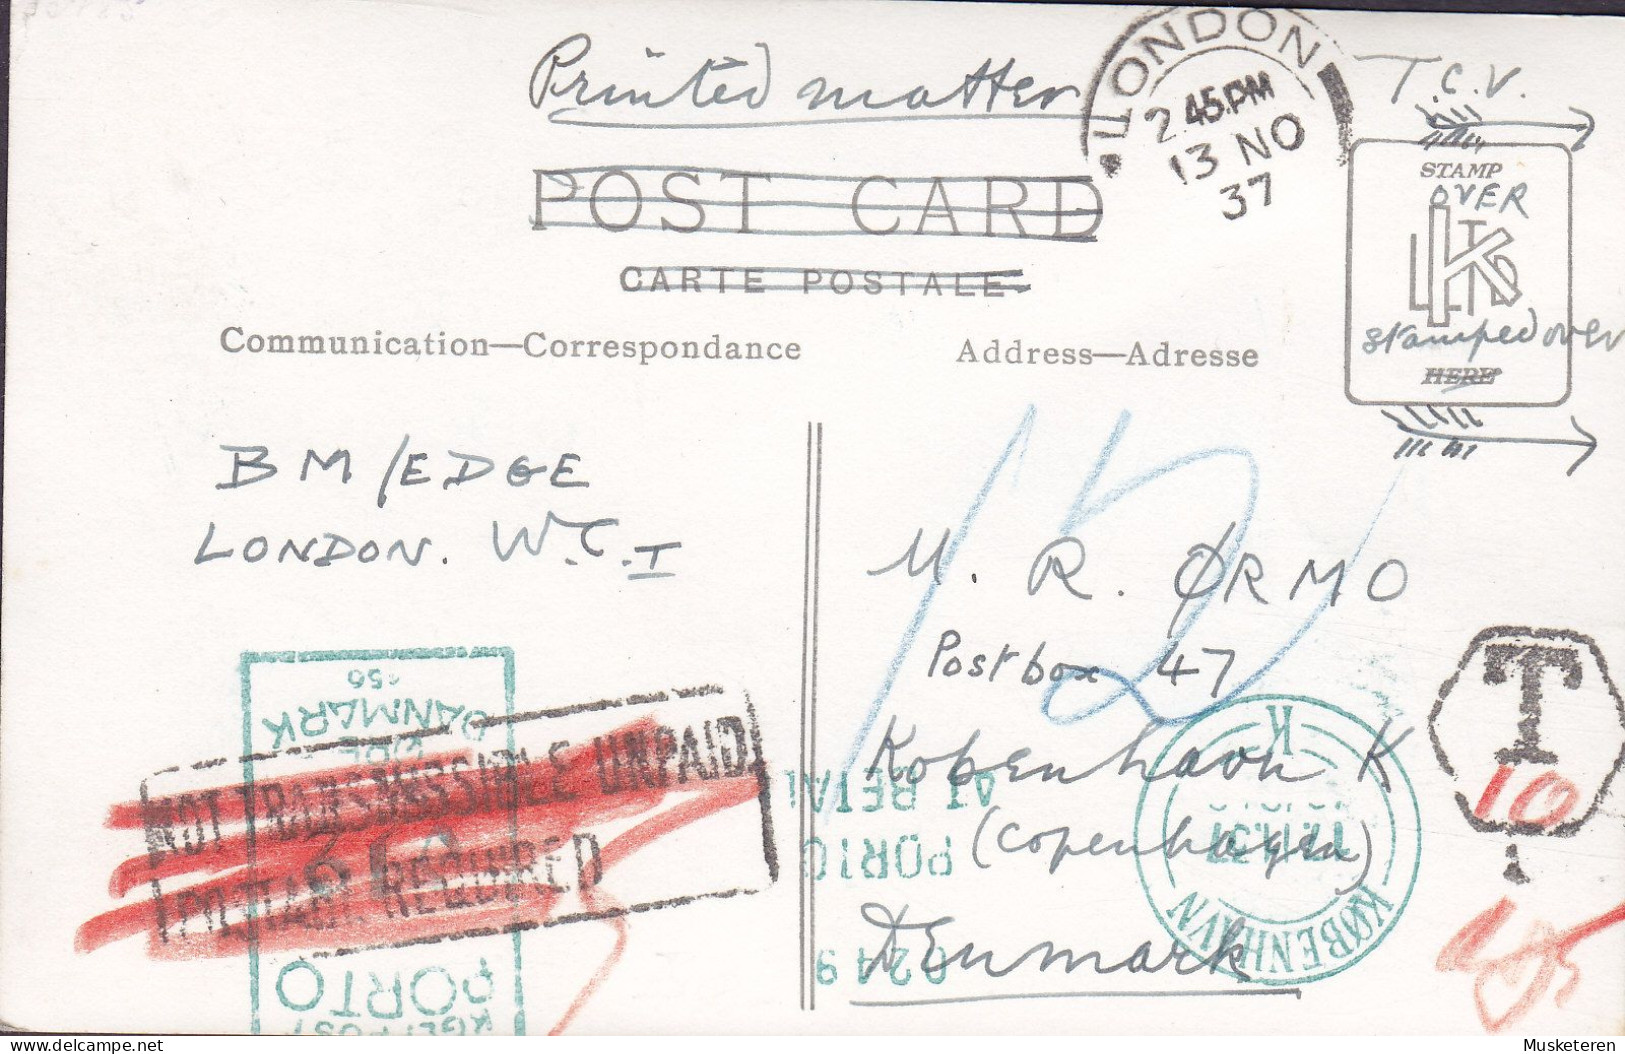 Printed matter
LONDON
2.45.PM
13 NO
37
T.C.V.
POST CARD
CARTE POSTALE
STAMP
OVER
stamped over
HERE
Communication—Correspondance
Address—Adresse
BM/EDGE
LONDON. W.C.I
M. R. ØRMO
Postbox 47
København K
(Copenhagen)
Denmark
T
10
NOT TRANSMISSIBLE UNPAID
POSTAGE REQUIRED
DANMARK
PORTO
K
17.11.37
KØBENHAVN
AT BETAL
PORTO
0249
Musketeren @ delcampe.net